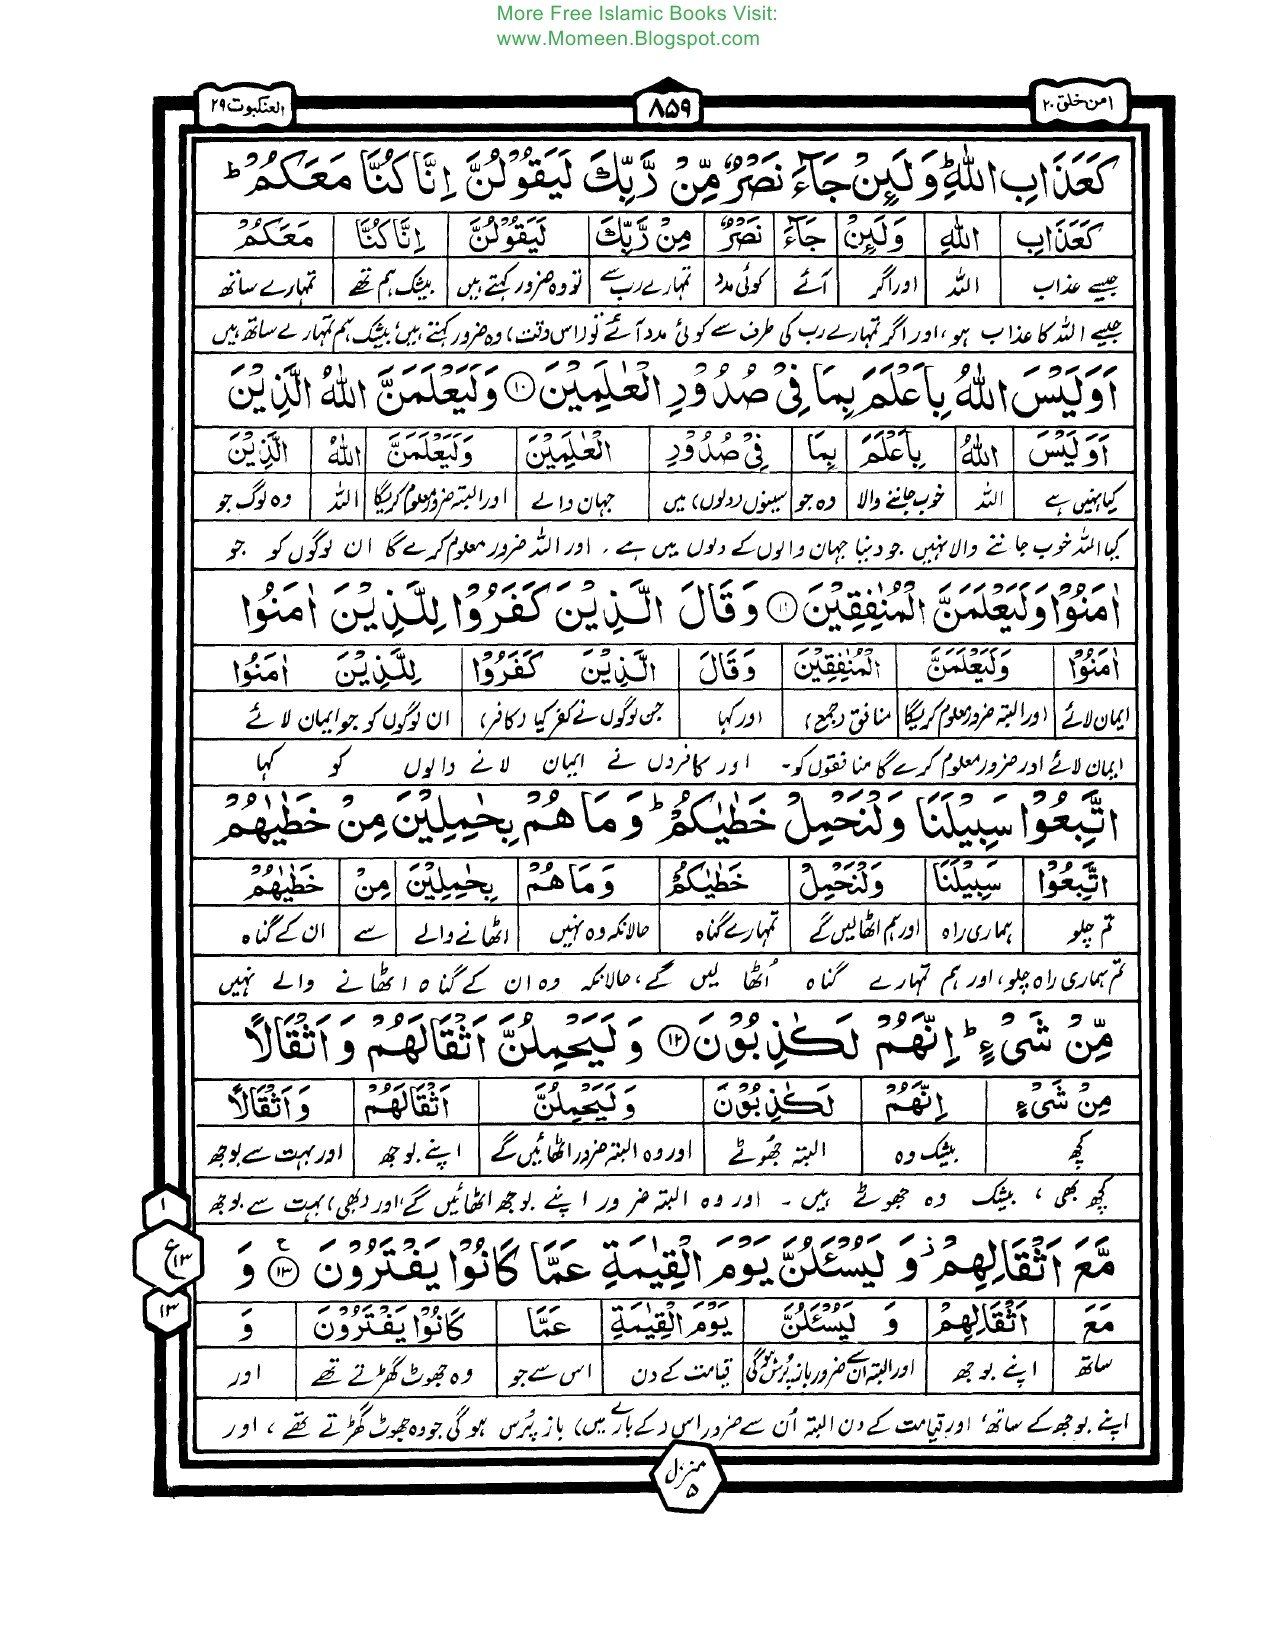 More Free Islamic Books Visit:
www.Momeen.Blogspot.com
امن خلق ۲۰ ۸۵۹ العنکبوت ۲۹
كَعَذَابِ اللّٰهِ ؕ وَلَئِنْ جَآءَ نَصْرٌ مِّنْ رَّبِّكَ لَيَقُوْلُنَّ اِنَّا كُنَّا مَعَكُمْ ؕ
كَعَذَابِ اللّٰهِ وَلَئِنْ جَآءَ نَصْرٌ مِنْ رَّبِّكَ لَيَقُوْلُنَّ اِنَّا كُنَّا مَعَكُمْ
جیسے عذاب اللہ اور اگر آئے کوئی مدد تمہارے رب سے تو وہ ضرور کہتے ہیں بیشک ہم تھے تمہارے ساتھ
جیسے اللہ کا عذاب ہو، اور اگر تمہارے رب کی طرف سے کوئی مدد آئے تو (اس وقت) وہ ضرور کہتے ہیں بیشک ہم تمہارے ساتھ ہیں
اَوَلَيْسَ اللّٰهُ بِاَعْلَمَ بِمَا فِيْ صُدُوْرِ الْعٰلَمِيْنَ ۱۰ وَلَيَعْلَمَنَّ اللّٰهُ الَّذِيْنَ
اَوَلَيْسَ اللّٰهُ بِاَعْلَمَ بِمَا فِيْ صُدُوْرِ الْعٰلَمِيْنَ وَلَيَعْلَمَنَّ اللّٰهُ الَّذِيْنَ
کیا نہیں ہے اللہ خوب جاننے والا وہ جو سینوں (دلوں) میں جہان والے اور البتہ ضرور معلوم کریگا اللہ وہ لوگ جو
کیا اللہ خوب جاننے والا نہیں جو دنیا جہان والوں کے دلوں میں ہے ۔ اور اللہ ضرور معلوم کرے گا ان لوگوں کو جو
اٰمَنُوْا وَلَيَعْلَمَنَّ الْمُنٰفِقِيْنَ ۱۱ وَقَالَ الَّذِيْنَ كَفَرُوْا لِلَّذِيْنَ اٰمَنُوا
اٰمَنُوْا وَلَيَعْلَمَنَّ الْمُنٰفِقِيْنَ وَقَالَ الَّذِيْنَ كَفَرُوْا لِلَّذِيْنَ اٰمَنُوا
ایمان لائے اور البتہ ضرور معلوم کریگا منافق (جمع) اور کہا جن لوگوں نے کفر کیا (کافر) ان لوگوں کو جو ایمان لائے
ایمان لائے اور ضرور معلوم کرے گا منافقوں کو۔ اور کافروں نے ایمان لانے والوں کو کہا
اتَّبِعُوْا سَبِيْلَنَا وَلْنَحْمِلْ خَطٰيٰكُمْ ؕ وَمَا هُمْ بِحٰمِلِيْنَ مِنْ خَطٰيٰهُمْ
اتَّبِعُوْا سَبِيْلَنَا وَلْنَحْمِلْ خَطٰيٰكُمْ وَمَا هُمْ بِحٰمِلِيْنَ مِنْ خَطٰيٰهُمْ
تم چلو ہماری راہ اور ہم اٹھالیں گے تمہارے گناہ حالانکہ وہ نہیں اٹھانے والے سے ان کے گناہ
تم ہماری راہ چلو، اور ہم تمہارے گناہ اُٹھا لیں گے، حالانکہ وہ ان کے گناہ اٹھانے والے نہیں
مِّنْ شَيْءٍ ؕ اِنَّهُمْ لَكٰذِبُوْنَ ۱۲ وَلَيَحْمِلُنَّ اَثْقَالَهُمْ وَاَثْقَالًا
مِنْ شَيْءٍ اِنَّهُمْ لَكٰذِبُوْنَ وَلَيَحْمِلُنَّ اَثْقَالَهُمْ وَاَثْقَالًا
کچھ بیشک وہ البتہ جھوٹے اور وہ البتہ ضرور اٹھائیں گے اپنے بوجھ اور بہت سے بوجھ
کچھ بھی، بیشک وہ جھوٹے ہیں ۔ اور وہ البتہ ضرور اپنے بوجھ اٹھائیں گے، اور (بھی) بہت سے بوجھ
۱
مَّعَ اَثْقَالِهِمْ ۫ وَلَيُسْئَلُنَّ يَوْمَ الْقِيٰمَةِ عَمَّا كَانُوْا يَفْتَرُوْنَ ۱۳ ع وَ
ع ۱۳
مَعَ اَثْقَالِهِمْ وَ لَيُسْئَلُنَّ يَوْمَ الْقِيٰمَةِ عَمَّا كَانُوْا يَفْتَرُوْنَ وَ
۱۳
ساتھ اپنے بوجھ اور البتہ ان سے ضرور باز پرس ہوگی قیامت کے دن اس سے جو وہ جھوٹ گھڑتے تھے اور
اپنے بوجھ کے ساتھ، اور قیامت کے دن البتہ اُن سے ضرور اس (کے بارے میں) باز پُرس ہو گی جو وہ جھوٹ گھڑتے تھے، اور
منزل ۵